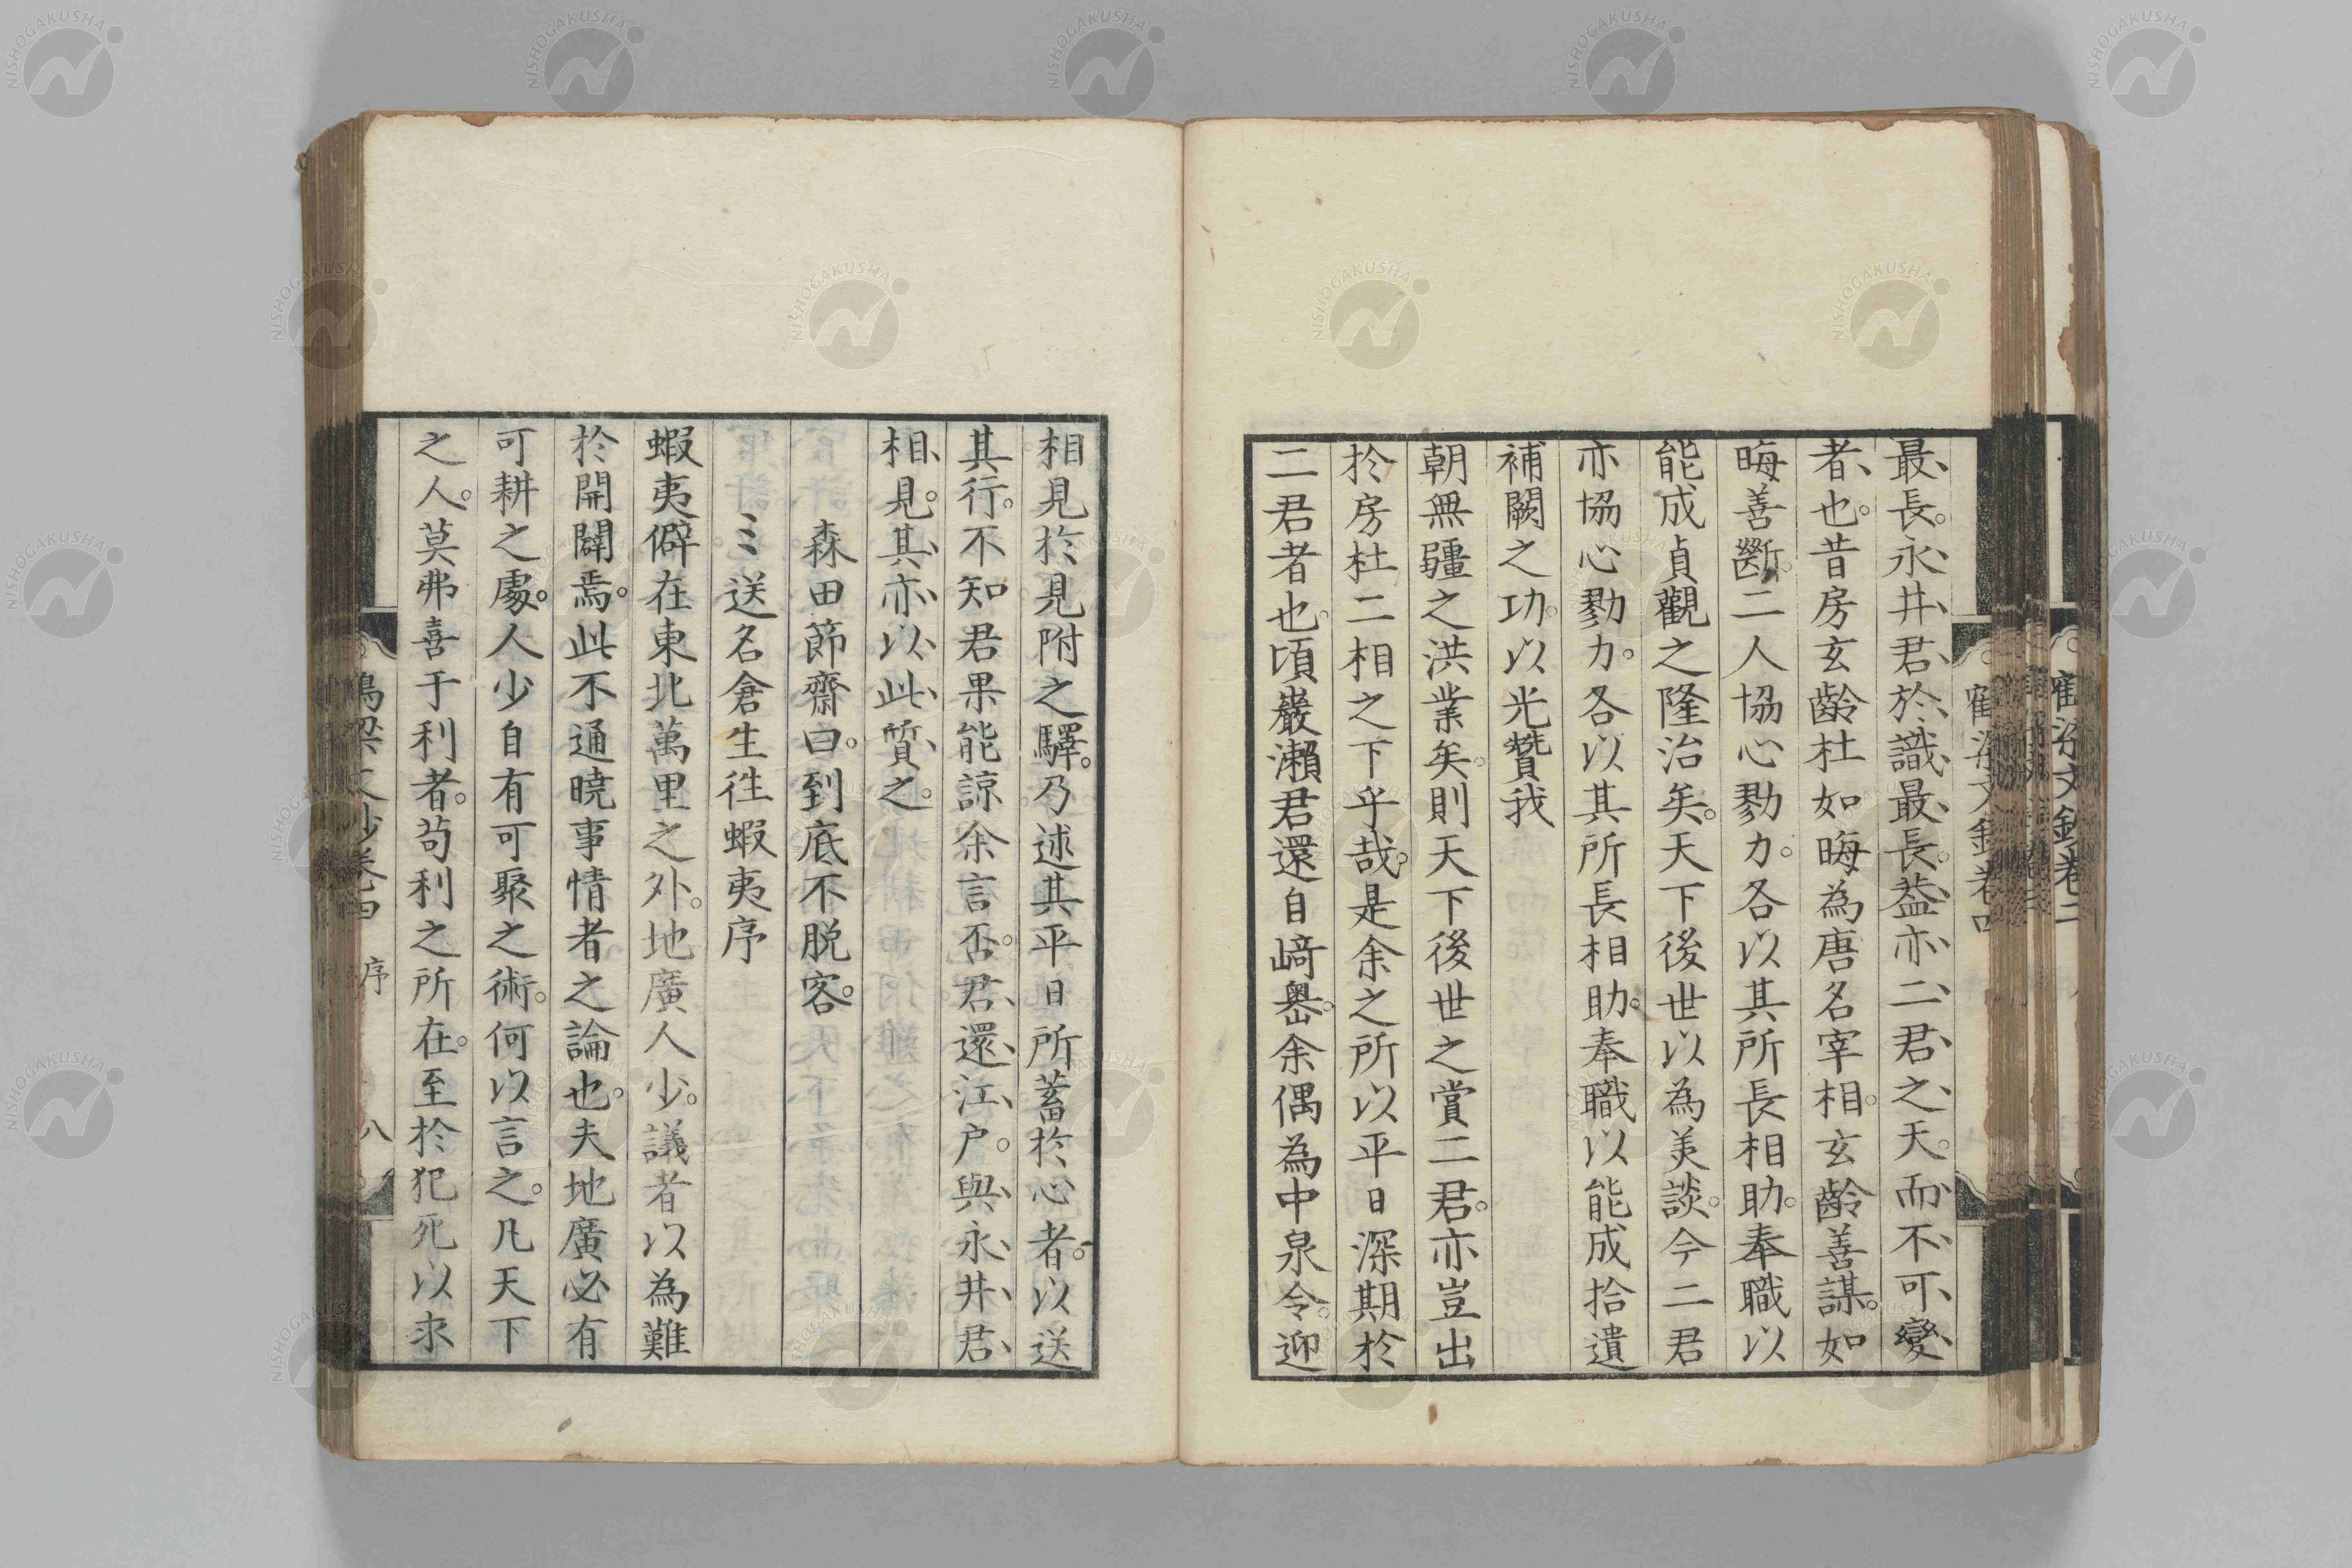 最長。永井君於識最長。益亦二君之天。而不可變
者也。昔房玄齡杜如晦為唐名宰相。玄齡善謀。如
晦善斷。二人協心勠力。各以其所長相助。奉職以
能成貞觀之隆治矣。天下後世以為美談。今二君
亦協心勠力。各以其所長相助。奉職以能成拾遺
補闕之功。以光贊我
朝無疆之洪業矣。則天下後世之賞二君。亦豈出
於房杜二相之下乎哉。是余之所以平日深期於
二君者也。頃巖瀨君還自﨑嶴。余偶為中泉令。迎
相見於見附之驛。乃述其平日所蓄於心者。以送
其行。不知君果能諒余言否。君還江戶。與永井君
相見。其亦以此質之。
森田節齋曰。到底不脱客。
送名倉生徃蝦夷序
蝦夷僻在東北萬里之外。地廣人少。議者以為難
於開闢焉。此不通曉事情者之論也。夫地廣必有
可耕之處。人少自有可聚之術。何以言之。凡天下
之人。莫弗喜于利者。苟利之所在。至於犯死以求
序 八
NISHOGAKUSHA